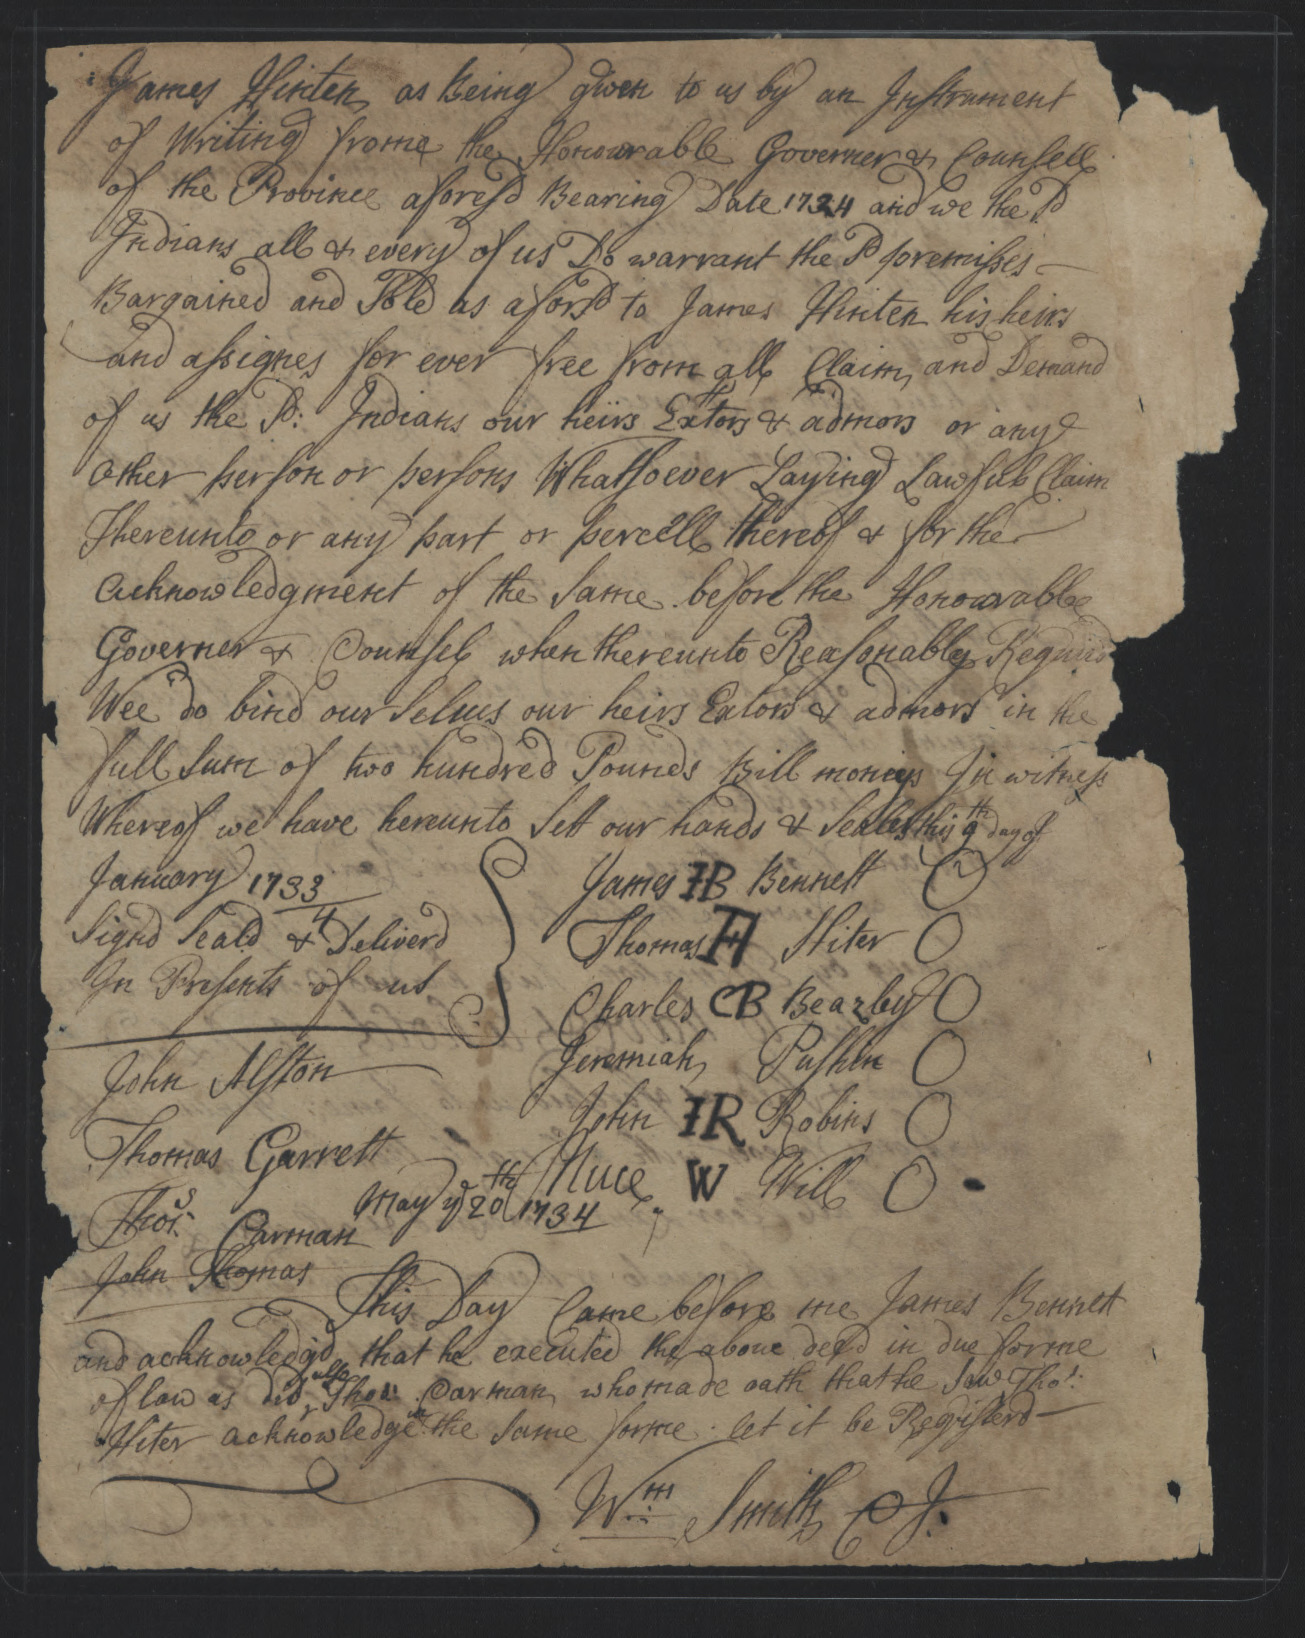 James Hinten as Being given to us by an Instrument
of Writing frome the Honourable Governer & Counsell
of the Province aforesd Bearing Date 1724 and we the sd
Indians all & every of us Do warrant the sd premisses
Bargained and Sold as aforsd to James Hinten his heirs
and assignes for ever free from all Claim, and Demand
of us the sd: Indians our heirs Extors & admors or any
other person or persons Whatsoever Laying Lawfull Claim
Thereunto or any part or percell thereof & for the
acknowledgment of the same before the Honourable
Governer & Counsel when thereunto Reasonably Requird
Wee do bind our selves our heirs Extors & admors in the
full sum of two hundred Pounds Bill moneys In witness
Whereof we have hereunto sett our hands & seales this 9th day of
January 1733/4
Signd Seald & Deliverd
In Presents of us
James IB Bennett
Thomas H Hiter
Charles CB Beazley
Jeremiah Pushin
John IR Robins
Nuce W Will
John Alston
Thomas Garrett
Thos. Carman
John Thomas
May ye 20th 1734
This Day Came before me James Bennett
and acknowledgd that he executed the above deed in due forme
of law as did also Thos: Carman who made oath that he saw Thos:
Hiter acknowledge in the same forme. let it be Registerd
Wm: Smith C J.